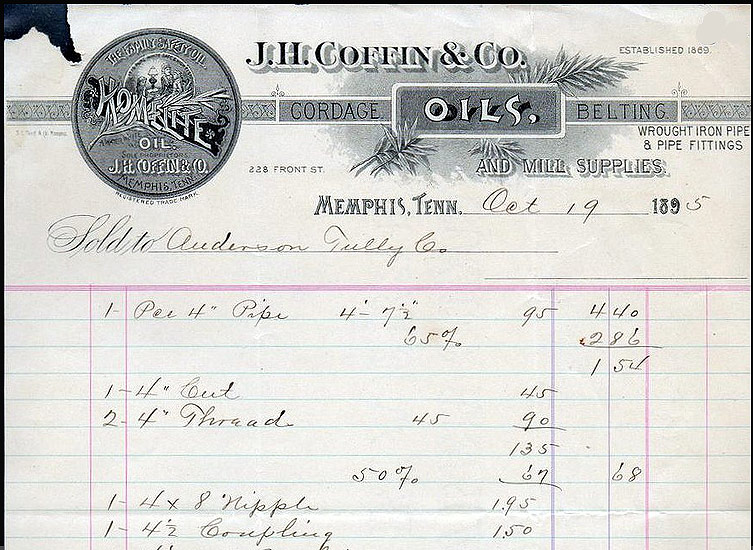 THE FAMILY SAFETY OIL
KOMNITE
OIL.
SOLE PROPRIETORS
J.H. COFFIN & CO.
MEMPHIS, TENN.
REGISTERED TRADE MARK.
J.H. COFFIN & CO.
ESTABLISHED 1869.
CORDAGE OILS, BELTING
WROUGHT IRON PIPE
& PIPE FITTINGS
228 FRONT ST. AND MILL SUPPLIES.
MEMPHIS, TENN. Oct 19 1895
Sold to Anderson Tully Co
1- Pce 4" Pipe 4'- 7½" 95 4 40
65% 2 86
1 54
1- 4" Cut 45
2- 4" Thread 45 90
135
50% 67 68
1- 4 x 8 Nipple 1.95
1- 4½ Coupling 1.50